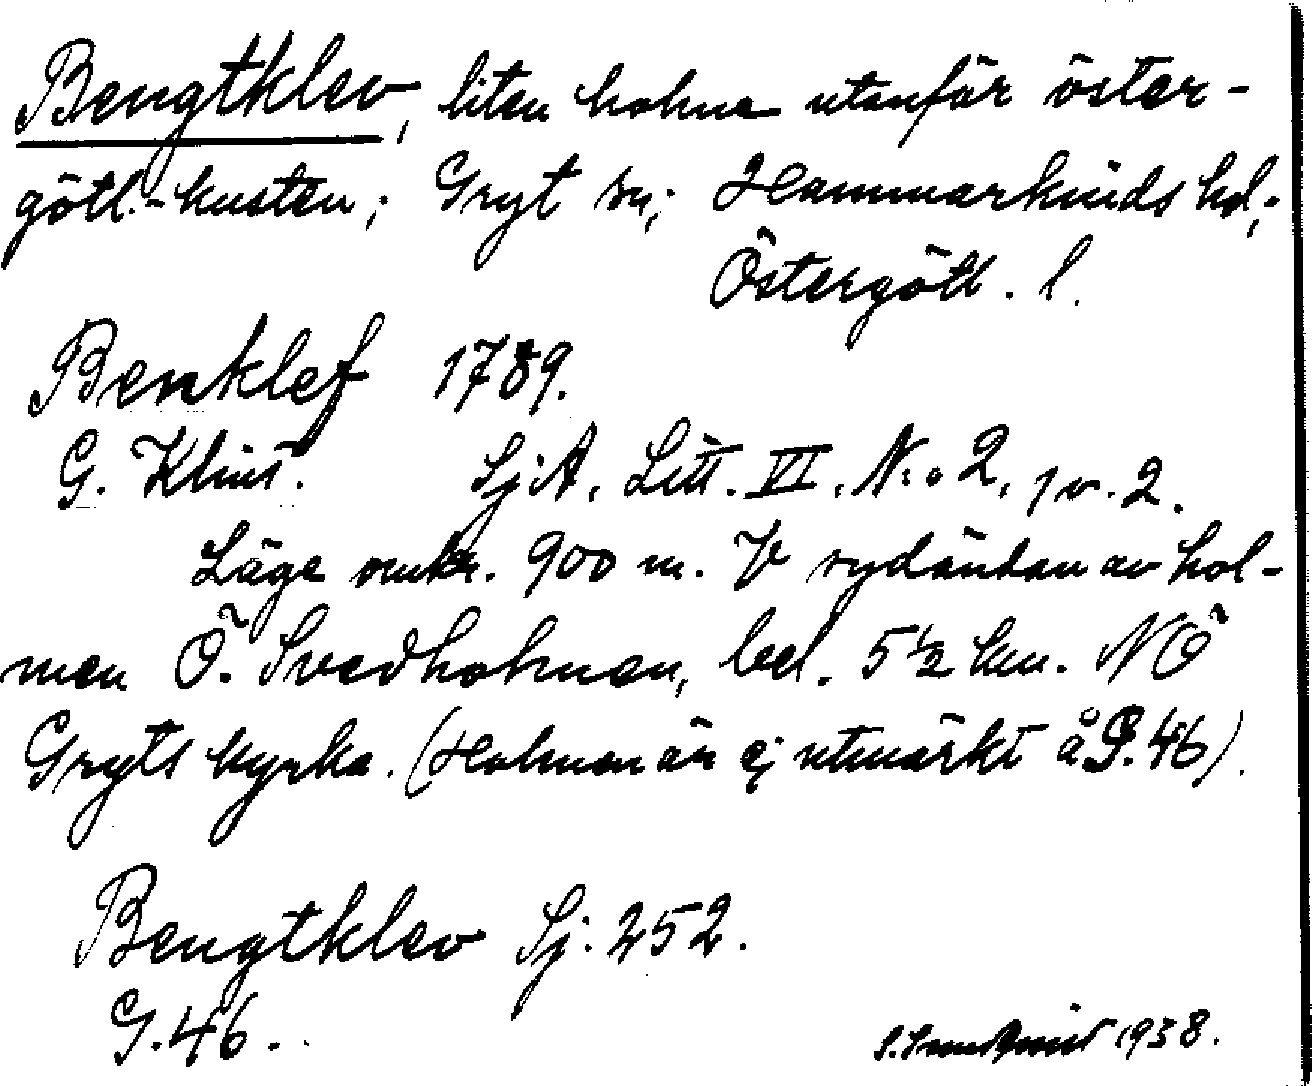 Bengtklev, liten holme utanför öster-
götl.-kusten; Gryt sn; Hammarkinds hd;
Östergötl. l.
Benklef 1789.
G. Klint. SjA, Litt. VI, N:o 2, 1 v. 2.
Läge omkr. 900 m. V sydändan av hol-
men Ö. Svedholmen, bel. 5½ km. NÖ
Gryts kyrka. (Holmen är ej utmärkt å G. 46).
Bengtklev Sj. 252.
G. 46.
1938.